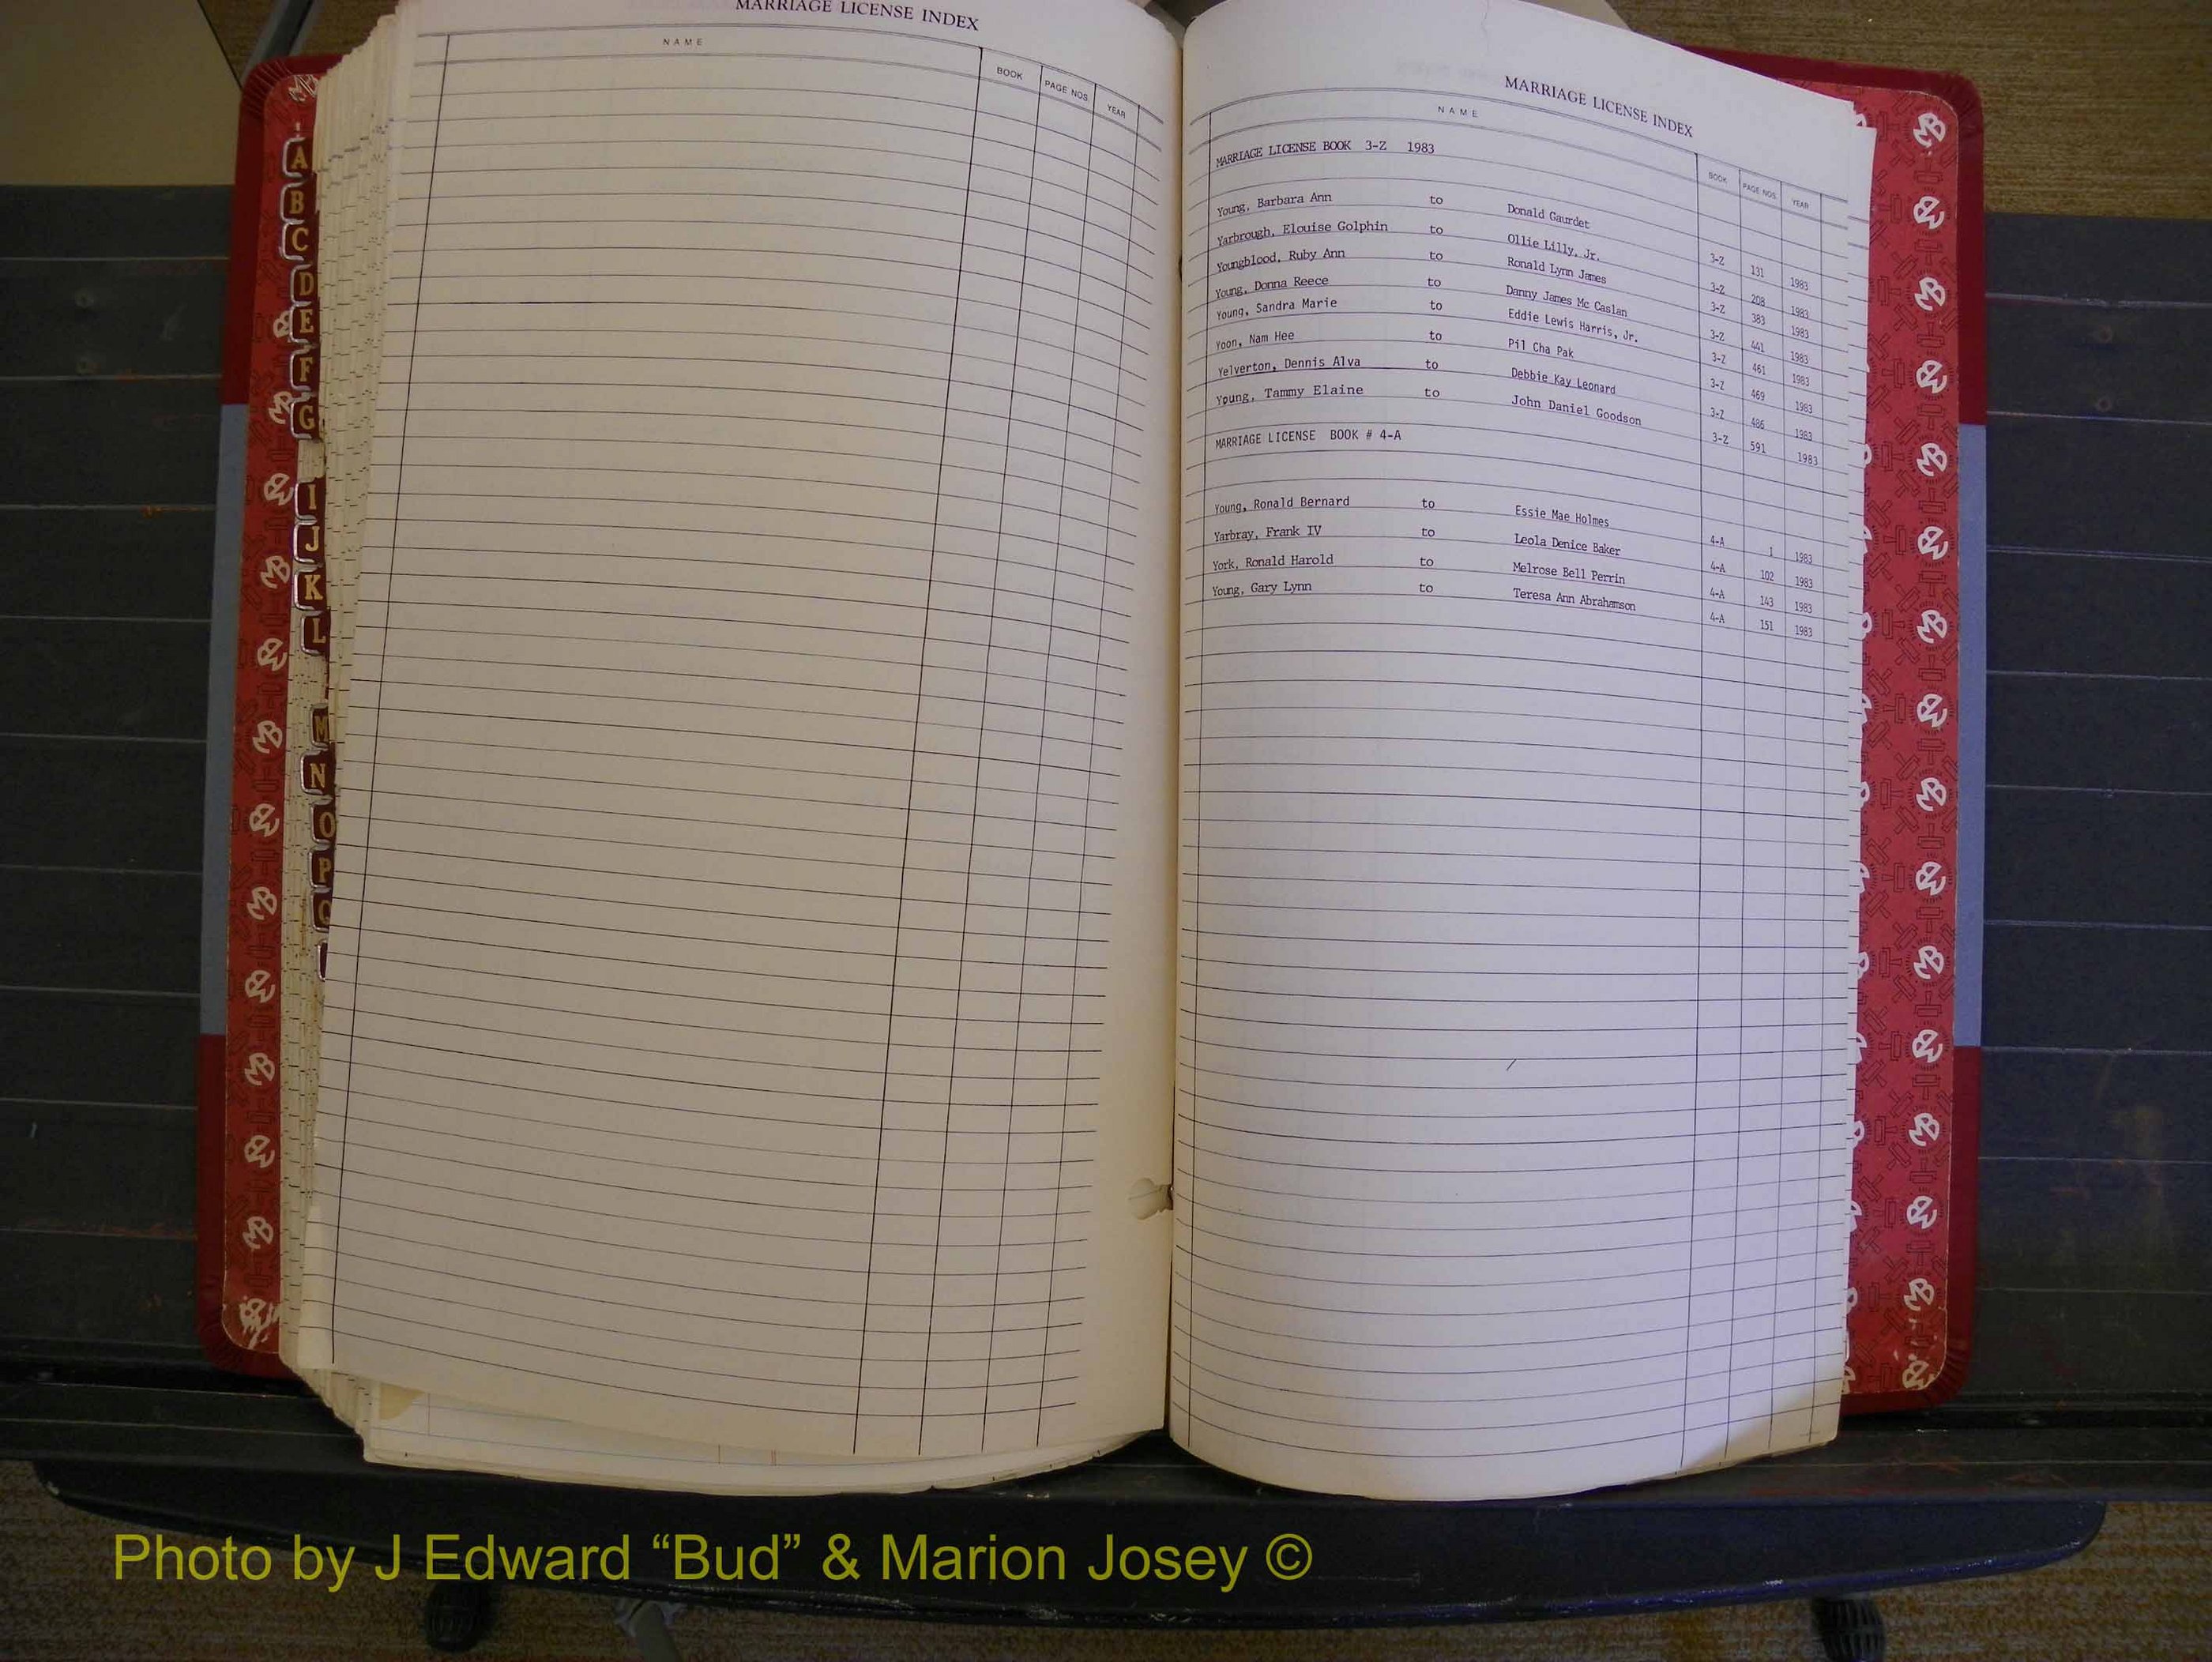 MARRIAGE LICENSE INDEX
NAME BOOK PAGE NOS. YEAR
A
B
C
D
E
F
G
I
J
K
L
M
N
O
P
Q
MARRIAGE LICENSE INDEX
NAME BOOK PAGE NOS. YEAR
MARRIAGE LICENSE BOOK 3-Z 1983
Young, Barbara Ann to Donald Gaurdet 3-Z 131 1983
Yarbrough, Elouise Golphin to Ollie Lilly, Jr. 3-Z 208 1983
Youngblood, Ruby Ann to Ronald Lynn James 3-Z 383 1983
Young, Donna Reece to Danny James Mc Caslan 3-Z 441 1983
Young, Sandra Marie to Eddie Lewis Harris, Jr. 3-Z 461 1983
Yoon, Nam Hee to Pil Cha Pak 3-Z 469 1983
Yelverton, Dennis Alva to Debbie Kay Leonard 3-Z 486 1983
Young, Tammy Elaine to John Daniel Goodson 3-Z 591 1983
MARRIAGE LICENSE BOOK # 4-A
Young, Ronald Bernard to Essie Mae Holmes 4-A 1 1983
Yarbray, Frank IV to Leola Denice Baker 4-A 102 1983
York, Ronald Harold to Melrose Bell Perrin 4-A 143 1983
Young, Gary Lynn to Teresa Ann Abrahamson 4-A 151 1983
Photo by J Edward “Bud” & Marion Josey ©